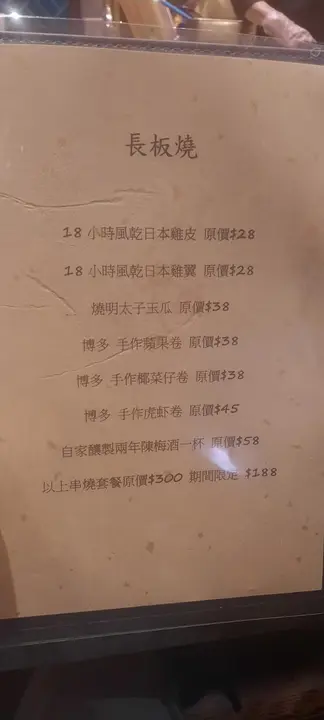 長板燒
18 小時風乾日本雞皮 原價$28
18 小時風乾日本雞翼 原價$28
燒明太子玉瓜 原價$38
博多 手作蘋果卷 原價$38
博多 手作椰菜仔卷 原價$38
博多 手作虎虾卷 原價$45
自家釀製兩年陳梅酒一杯 原價$58
以上串燒套餐原價$300 期間限定 $188